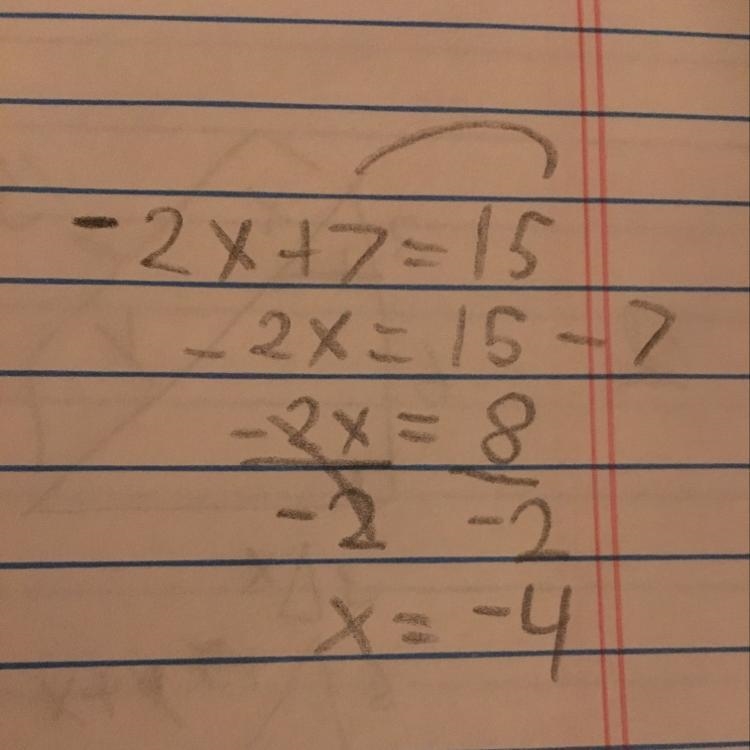 -2x+7=15
-2x=15-7
-2x = 8
-2 -2
x = -4